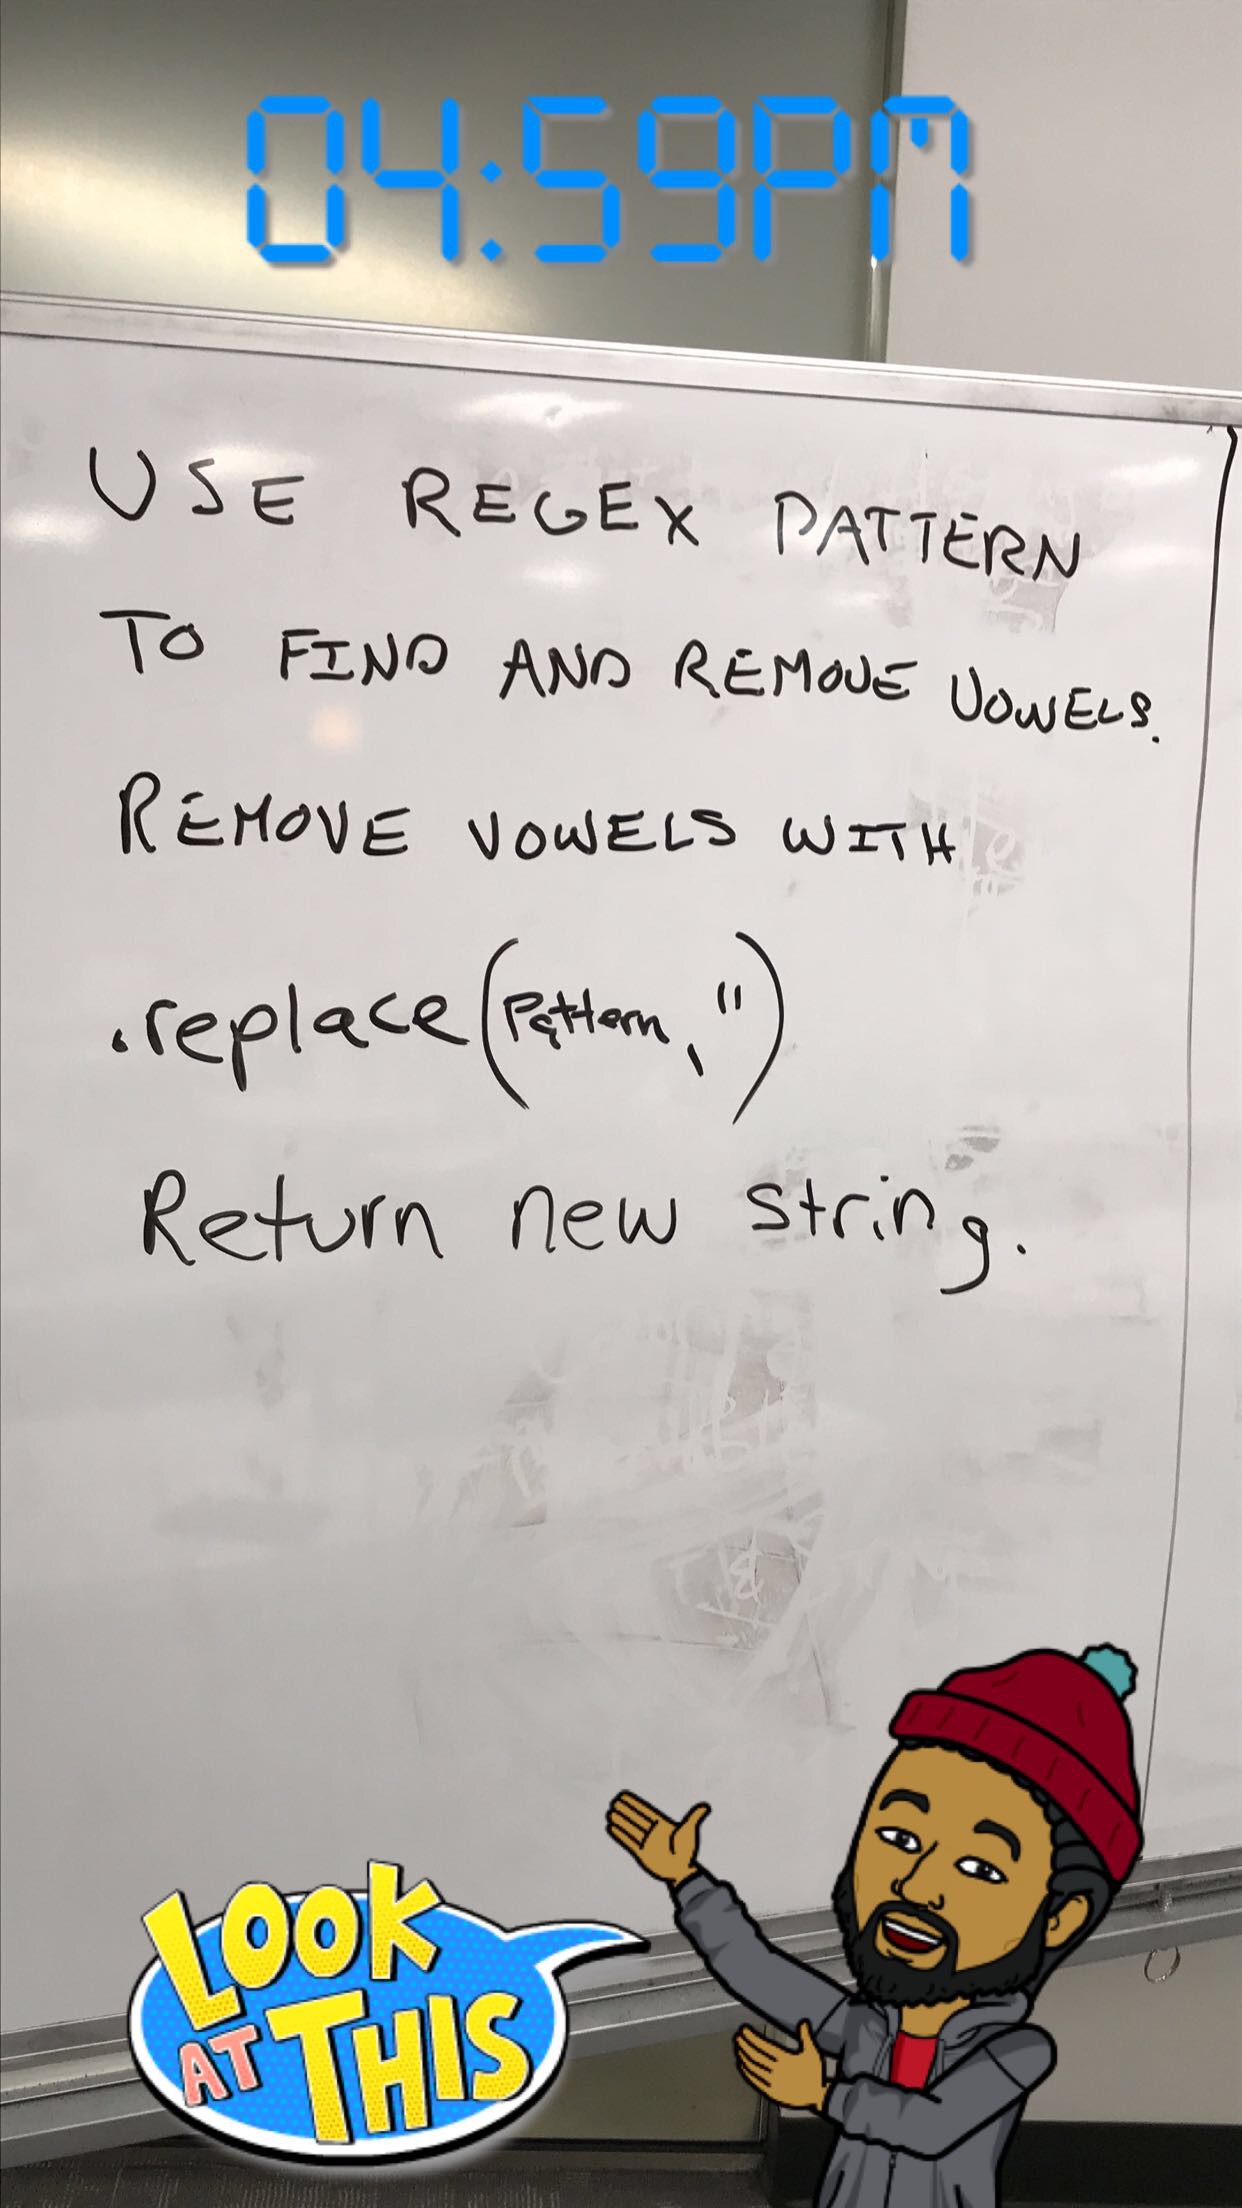 04:59PM
USE REGEX PATTERN
TO FIND AND REMOVE VOWELS.
REMOVE VOWELS WITH
.replace(Pattern, '')
Return new string.
LOOK
AT THIS